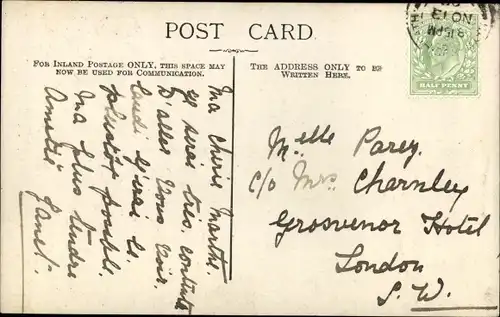 POST CARD.
FOR INLAND POSTAGE ONLY, THIS SPACE MAY
NOW BE USED FOR COMMUNICATION.
THE ADDRESS ONLY TO BE
WRITTEN HERE.
NO 13
8.15PM
HALF PENNY
Ma chère Marthe.
Je serai très contente
D'aller Vous voir
Lundi. J'irai le
plustôt possible.
Ma plus tendre
Amitié
Janet.
Melle Parey.
c/o Mrs Charnley
Grosvenor Hotel
London
S.W.